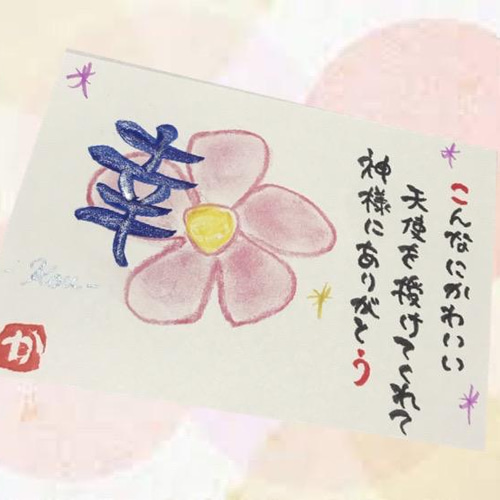 こんなにかわいい
天使を授けてくれて
神様にありがとう
幸
か